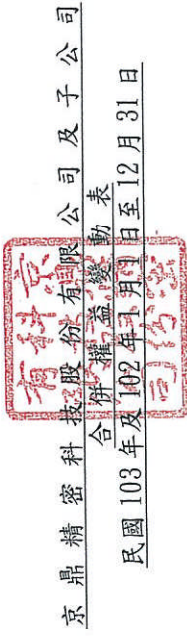 京鼎精密科技股份有限公司及子公司
合併權益變動表
民國103年及102年1月1日至12月31日